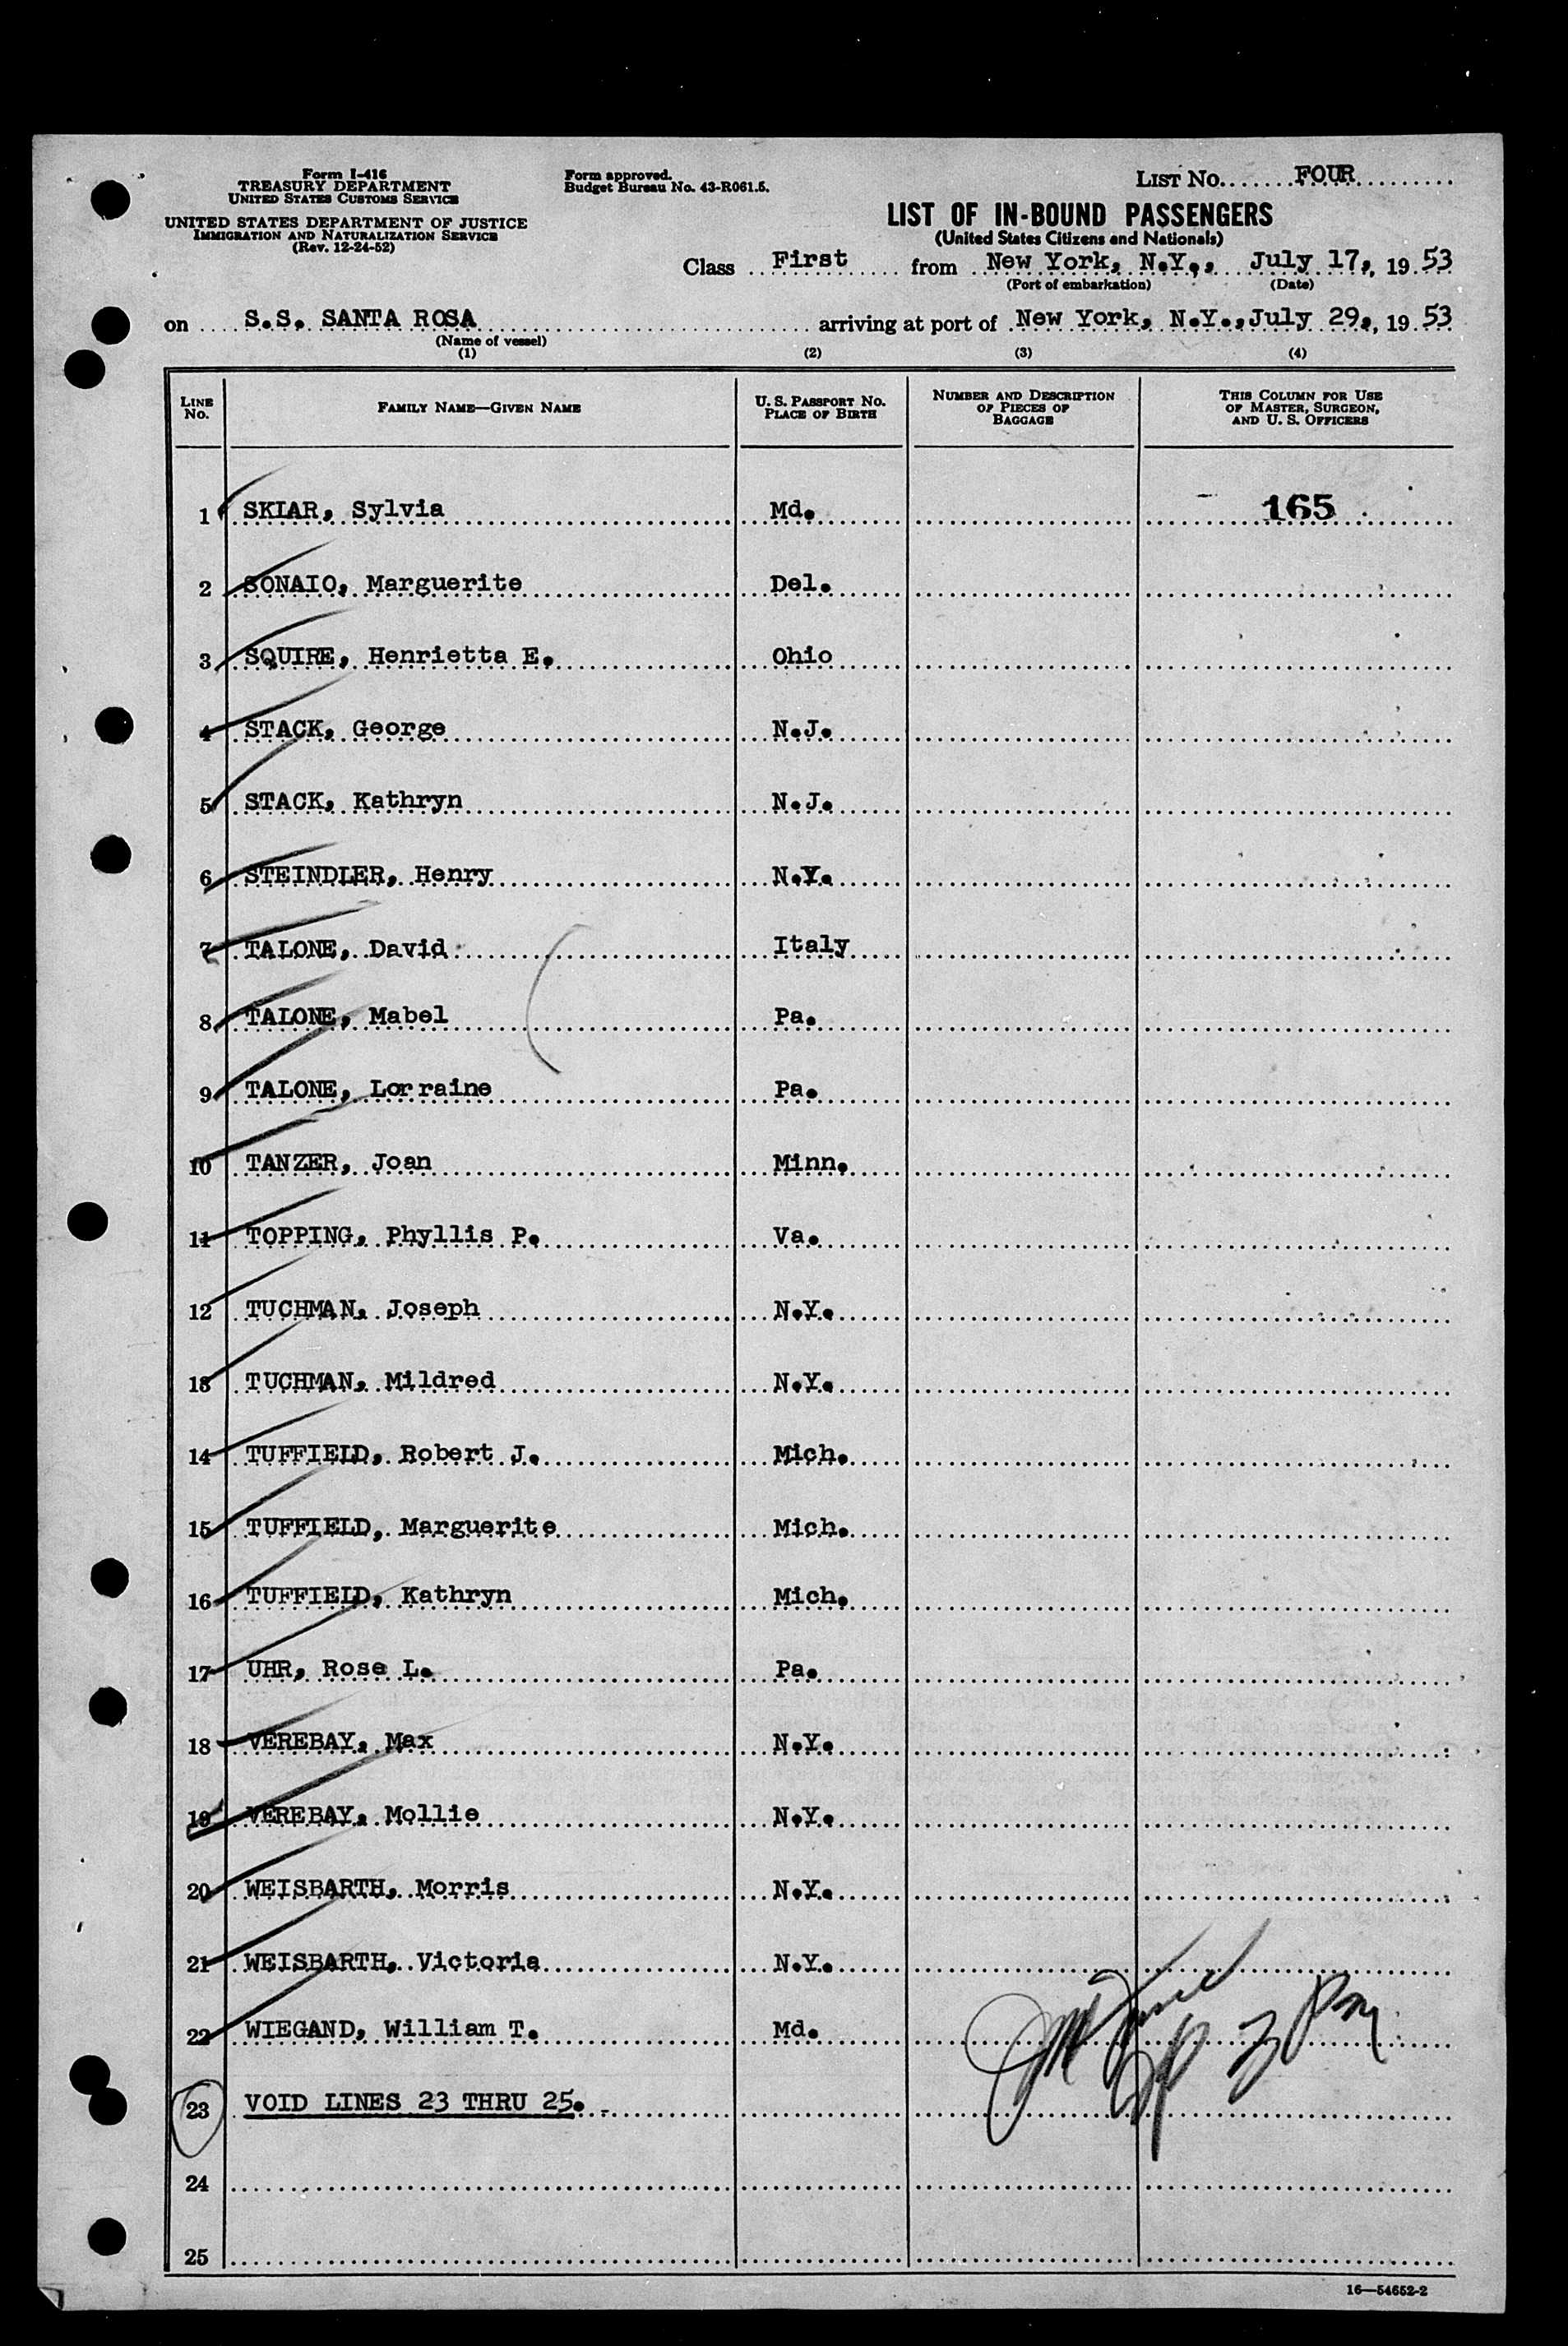 Form I-416
TREASURY DEPARTMENT
UNITED STATES CUSTOMS SERVICE
UNITED STATES DEPARTMENT OF JUSTICE
IMMIGRATION AND NATURALIZATION SERVICE
(Rev. 12-24-52)
Form approved.
Budget Bureau No. 43-R061.5.
LIST No. FOUR
LIST OF IN-BOUND PASSENGERS
(United States Citizens and Nationals)
Class First from New York, N.Y., July 17, 1953
(Port of embarkation) (Date)
on S.S. SANTA ROSA arriving at port of New York, N.Y., July 29, 1953
(Name of vessel)
(1) (2) (3) (4)
LINE No. FAMILY NAME—GIVEN NAME U. S. PASSPORT No. PLACE OF BIRTH NUMBER AND DESCRIPTION OF PIECES OF BAGGAGE THIS COLUMN FOR USE OF MASTER, SURGEON, AND U. S. OFFICERS
1 SKIAR, Sylvia Md. 165
2 SONAIO, Marguerite Del.
3 SQUIRE, Henrietta E. Ohio
4 STACK, George N.J.
5 STACK, Kathryn N.J.
6 STEINDLER, Henry N.Y.
7 TALONE, David Italy
8 TALONE, Mabel Pa.
9 TALONE, Lorraine Pa.
10 TANZER, Joan Minn.
11 TOPPING, Phyllis P. Va.
12 TUCHMAN, Joseph N.Y.
13 TUCHMAN, Mildred N.Y.
14 TUFFIELD, Robert J. Mich.
15 TUFFIELD, Marguerite Mich.
16 TUFFIELD, Kathryn Mich.
17 UHR, Rose L. Pa.
18 VEREBAY, Max N.Y.
19 VEREBAY, Mollie N.Y.
20 WEISBARTH, Morris N.Y.
21 WEISBARTH, Victoria N.Y.
22 WIEGAND, William T. Md.
23 VOID LINES 23 THRU 25.
24
25
16—54652-2